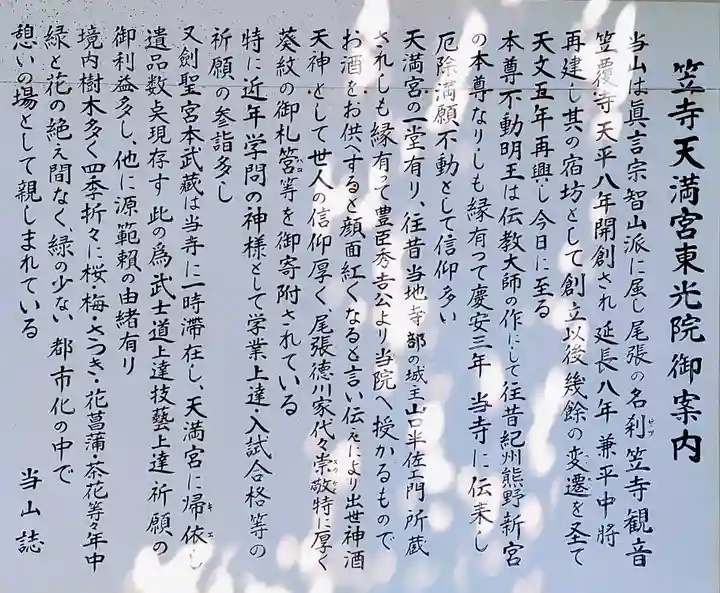 笠寺天満宮東光院御案内
当山は眞言宗智山派に属し尾張の名刹笠寺観音
サツ
笠覆寺天平八年開創され延長八年兼平中将
再建し其の宿坊として創立以後幾餘の変遷を圣て
天文五年再興し今日に至る
本尊不動明王は伝教大師の作にして往昔紀州熊野新宮
の本尊なりしも縁有って慶安三年当寺に伝来し
厄除満願不動として信仰多い
天満宮の一堂有り往昔当地寺部の城主山口半佐ェ門所蔵
されしも縁有って豊臣秀吉公より当院へ授かるもので
お酒をお供へすると顔面紅くなると言い伝えにより出世神酒
天神として世人の信仰厚く、尾張徳川家代々崇敬特に厚く
葵紋の御札筥等を御寄附されている
特に近年学問の神様として学業上達・入試合格等の
祈願の参詣多し
又劍聖宮本武蔵は当寺に一時滞在し、天満宮に帰依し
キエ
遺品数点現存す此の為武士道上達技藝上達祈願の
御利益多し、他に源範頼の由緒有り
境内樹木多く四季折々に桜・梅・さつき・花菖蒲・茶花等々年中
緑と花の絶え間なく、緑の少ない都市化の中で
憩いの場として親しまれている
当山誌